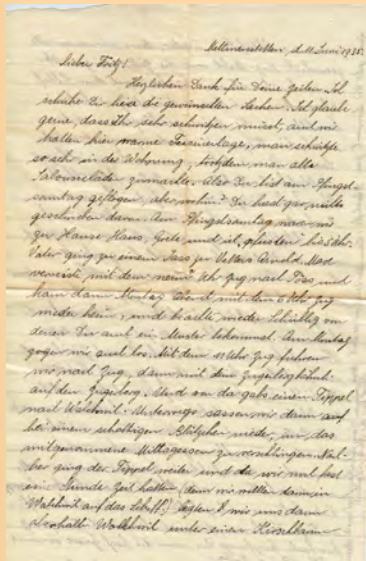 Mettmenstetten, d. 11. Juni 1935.
Lieber Fritz!
Herzlichen Dank für Deine Zeilen. Ich
schicke Dir hier die gewünschten Sachen. Ich glaube
gerne, dass Ihr sehr schwitzen müsst, auch wir
hatten hier warme Ferientage, man schwitzte
so sehr in der Wohnung, trotzdem man alle
Jalousieladen zumachte. Also Du bist am Pfingst-
samstag geflogen, aber wohin? Du hast gar nichts
geschrieben davon. Am Pfingstsamstag waren wir
zu Hause Hans, Grete und ich, bis 6 Uhr.
Vater ging zu einem Jass zu Vetters Arnold. Max
verreiste mit dem neun Uhr Zug nach Töss und
kam dann Montag Abend mit dem 6 Uhr Zug
wieder heim, und brachte wieder Schüblig von
denen Du auch ein Muster bekommst. Am Montag
zogen wir auch los. Mit dem 11 Uhr Zug fuhren
wir nach Zug, dann mit dem Zugerbergbähnli
auf den Zugerberg. Und von da gabs einen Tippel
nach Walchwil. Unterwegs sassen wir dann auf
bei einem schattigen Plätzchen nieder, um das
mitgenommene Mittagessen zu verschlingen. Nach-
her ging der Tippel weiter und da wir noch fast
eine Stunde Zeit hatten (denn wir wollten dann in
Walchwil auf das Schiff.) legten wir uns dann
oberhalb Walchwil unter einen Kirschbaum